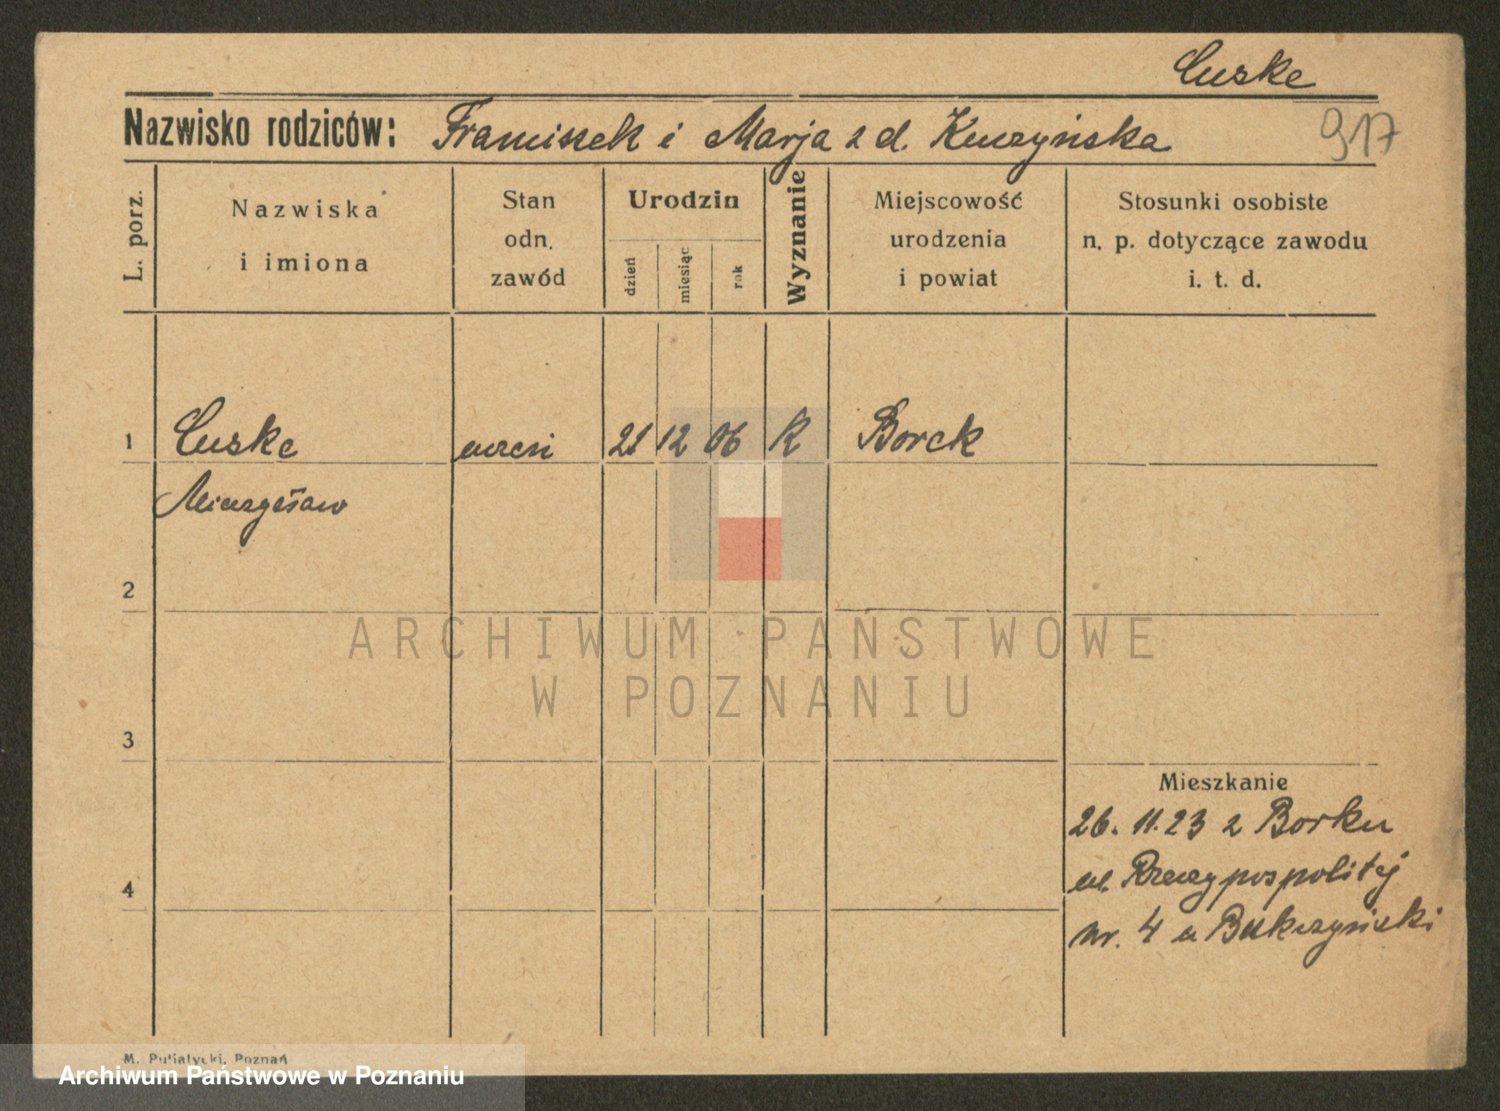 Cuske
Nazwisko rodziców: Franciszek i Marja z d. Kuczyńska 917
L. porz.
Nazwiska
i imiona
Stan
odn.
zawód
Urodzin
dzień
miesiąc
rok
Wyznanie
Miejscowość
urodzenia
i powiat
Stosunki osobiste
n. p. dotyczące zawodu
i. t. d.
1 Cuske uczeń 21 12 06 K Borek
Mieczysław
2
ARCHIWUM PAŃSTWOWE
W POZNANIU
3
Mieszkanie
26. 11. 23 z Borku
ul. Rzeczypospolitej
4
nr. 4 u
M. Putiatycki, Poznań
Archiwum Państwowe w Poznaniu